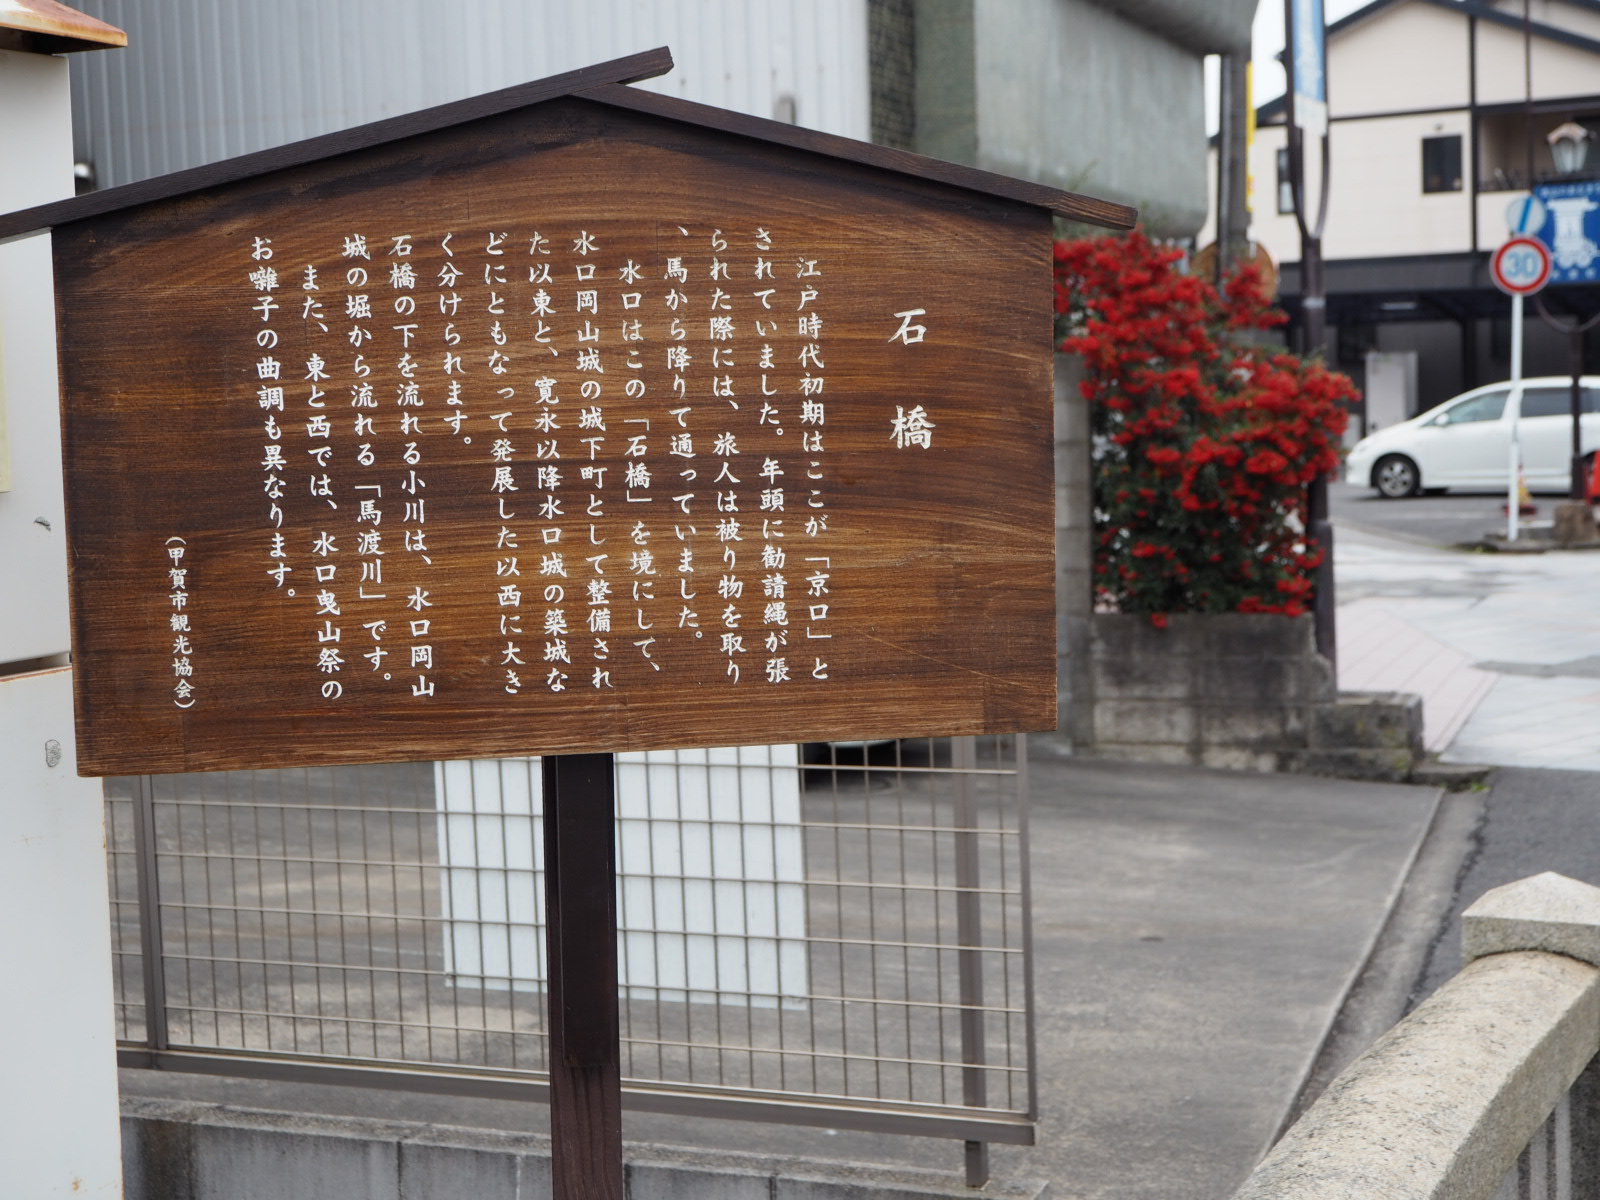 石橋
江戸時代初期はここが「京口」と
されていました。年頭に勧請縄が張
られた際には、旅人は被り物を取り
、馬から降りて通っていました。
水口はこの「石橋」を境にして、
水口岡山城の城下町として整備され
た以東と、寛永以降水口城の築城な
どにともなって発展した以西に大き
く分けられます。
石橋の下を流れる小川は、水口岡山
城の堀から流れる「馬渡川」です。
また、東と西では、水口曳山祭の
お囃子の曲調も異なります。
(甲賀市観光協会)
30